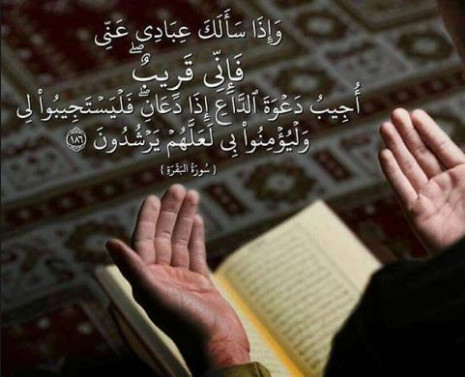 وَإِذَا سَأَلَكَ عِبَادِى عَنِّى
فَإِنِّى قَرِيبٌۖ
أُجِيبُ دَعْوَةَ ٱلدَّاعِ إِذَا دَعَانِۖ فَلْيَسْتَجِيبُوا۟ لِى
وَلْيُؤْمِنُوا۟ بِى لَعَلَّهُمْ يَرْشُدُونَ ١٨٦
{ سُورَةُ البَقَرَةِ }